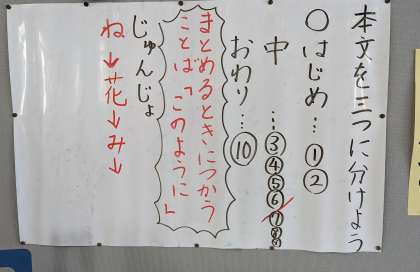 本文を三つに分けよう
○はじめ…①②
中…③④⑤⑥⑦⑧⑨
おわり…⑩
まとめるときにつかう
ことば「このように」
じゅんじょ
ね→花→み→